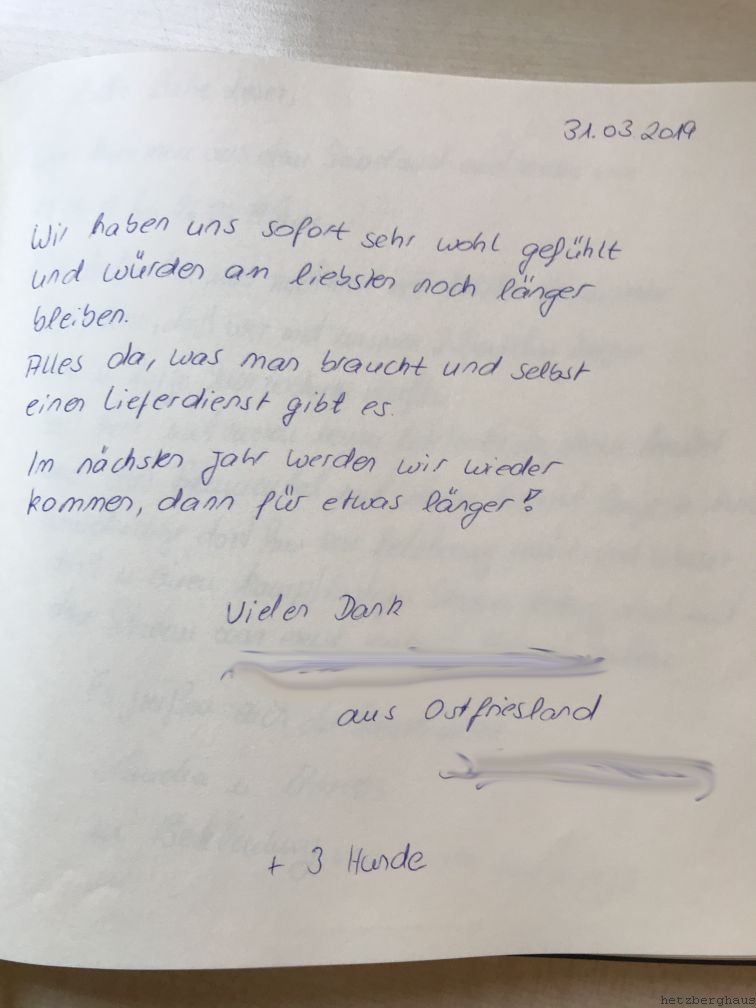 31.03.2019
Wir haben uns sofort sehr wohl gefühlt
und würden am liebsten noch länger
bleiben.
Alles da, was man braucht und selbst
einen Lieferdienst gibt es.
Im nächsten Jahr werden wir wieder
kommen, dann für etwas länger!
Vielen Dank
aus Ostfriesland
+ 3 Hunde
hetzberghaus